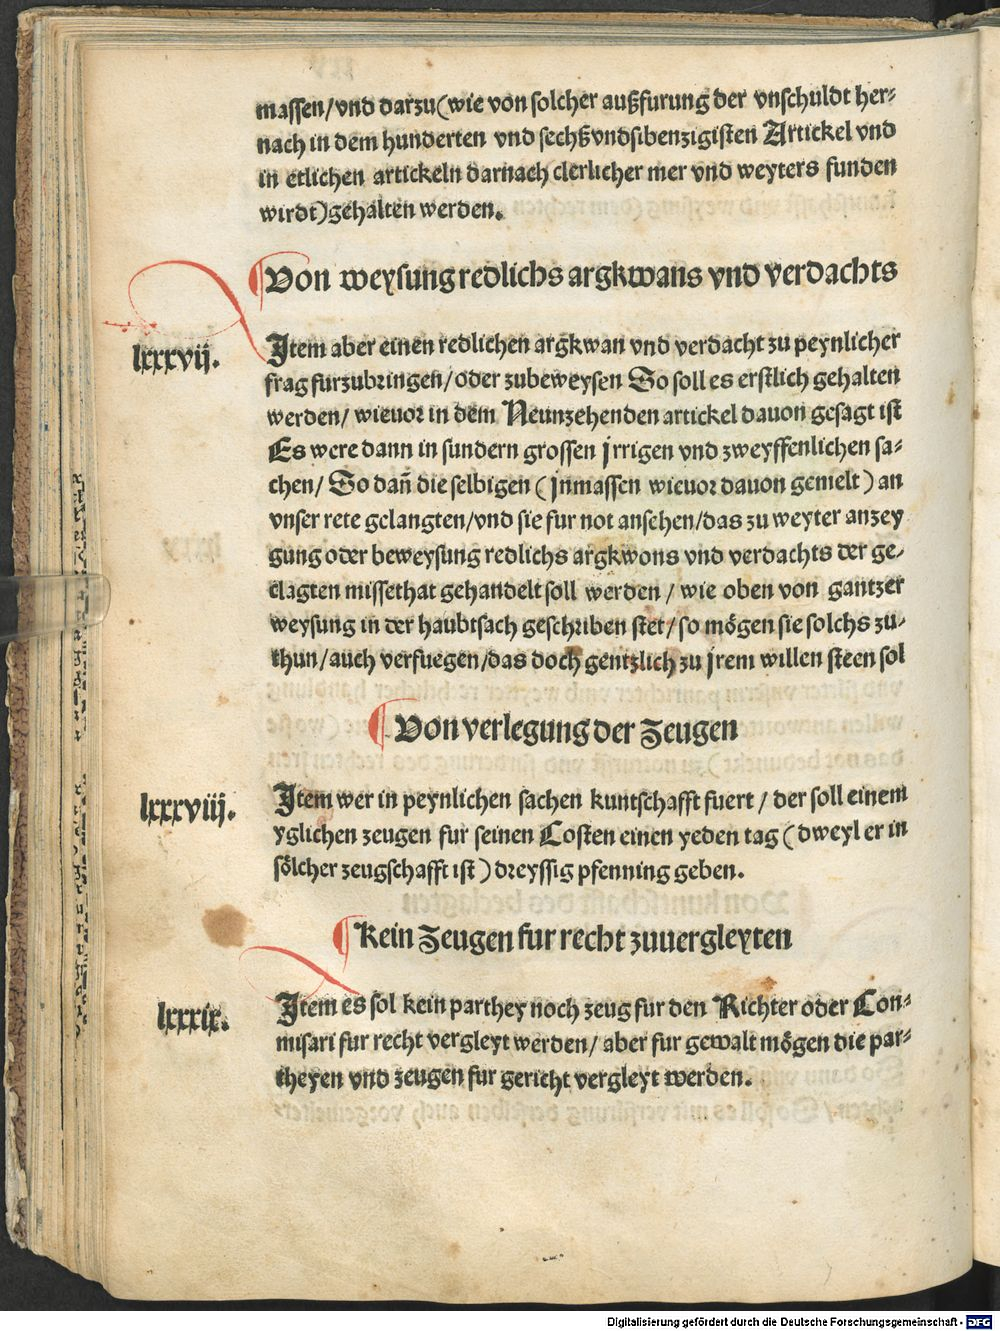 massen/vnd darzu(wie von solcher außfurung der vnschuldt her-
nach in dem hunderten vnd sechßvndsibenzigisten Artickel vnd
in etlichen artickeln darnach clerlicher mer vnd weyters funden
wirdt)gehalten werden.
Von weysung redlichs argkwans vnd verdachts
lxxxvij.
Item aber einen redlichen argkwan vnd verdacht zu peynlicher
frag furzubringen/oder zubeweysen So soll es erstlich gehalten
werden/ wieuor in dem Neunzehenden artickel dauon gesagt ist
Es were dann in sundern grossen jrrigen vnd zweyffenlichen sa-
chen/ So dañ die selbigen (jnmassen wieuor dauon gemelt) an
vnser rete gelangten/vnd sie fur not ansehen/das zu weyter anzey
gung oder beweysung redlichs argkwons vnd verdachts der ge-
clagten missethat gehandelt soll werden/ wie oben von gantzer
weysung in der haubtsach geschriben stet/ so mögen sie solchs zu-
thun/auch verfuegen/das doch gentzlich zu jrem willen steen sol
Von verlegung der Zeugen
lxxxviij.
Item wer in peynlichen sachen kuntschafft fuert/ der soll einem
yglichen zeugen fur seinen Costen einen yeden tag (dweyl er in
sölcher zeugschafft ist) dreyssig pfenning geben.
Kein Zeugen fur recht zuuergleyten
lxxxix.
Item es sol kein parthey noch zeug fur den Richter oder Con-
misari fur recht vergleyt werden/ aber fur gewalt mögen die par-
theyen vnd zeugen fur gericht vergleyt werden.
Digitalisierung gefördert durch die Deutsche Forschungsgemeinschaft - DFG